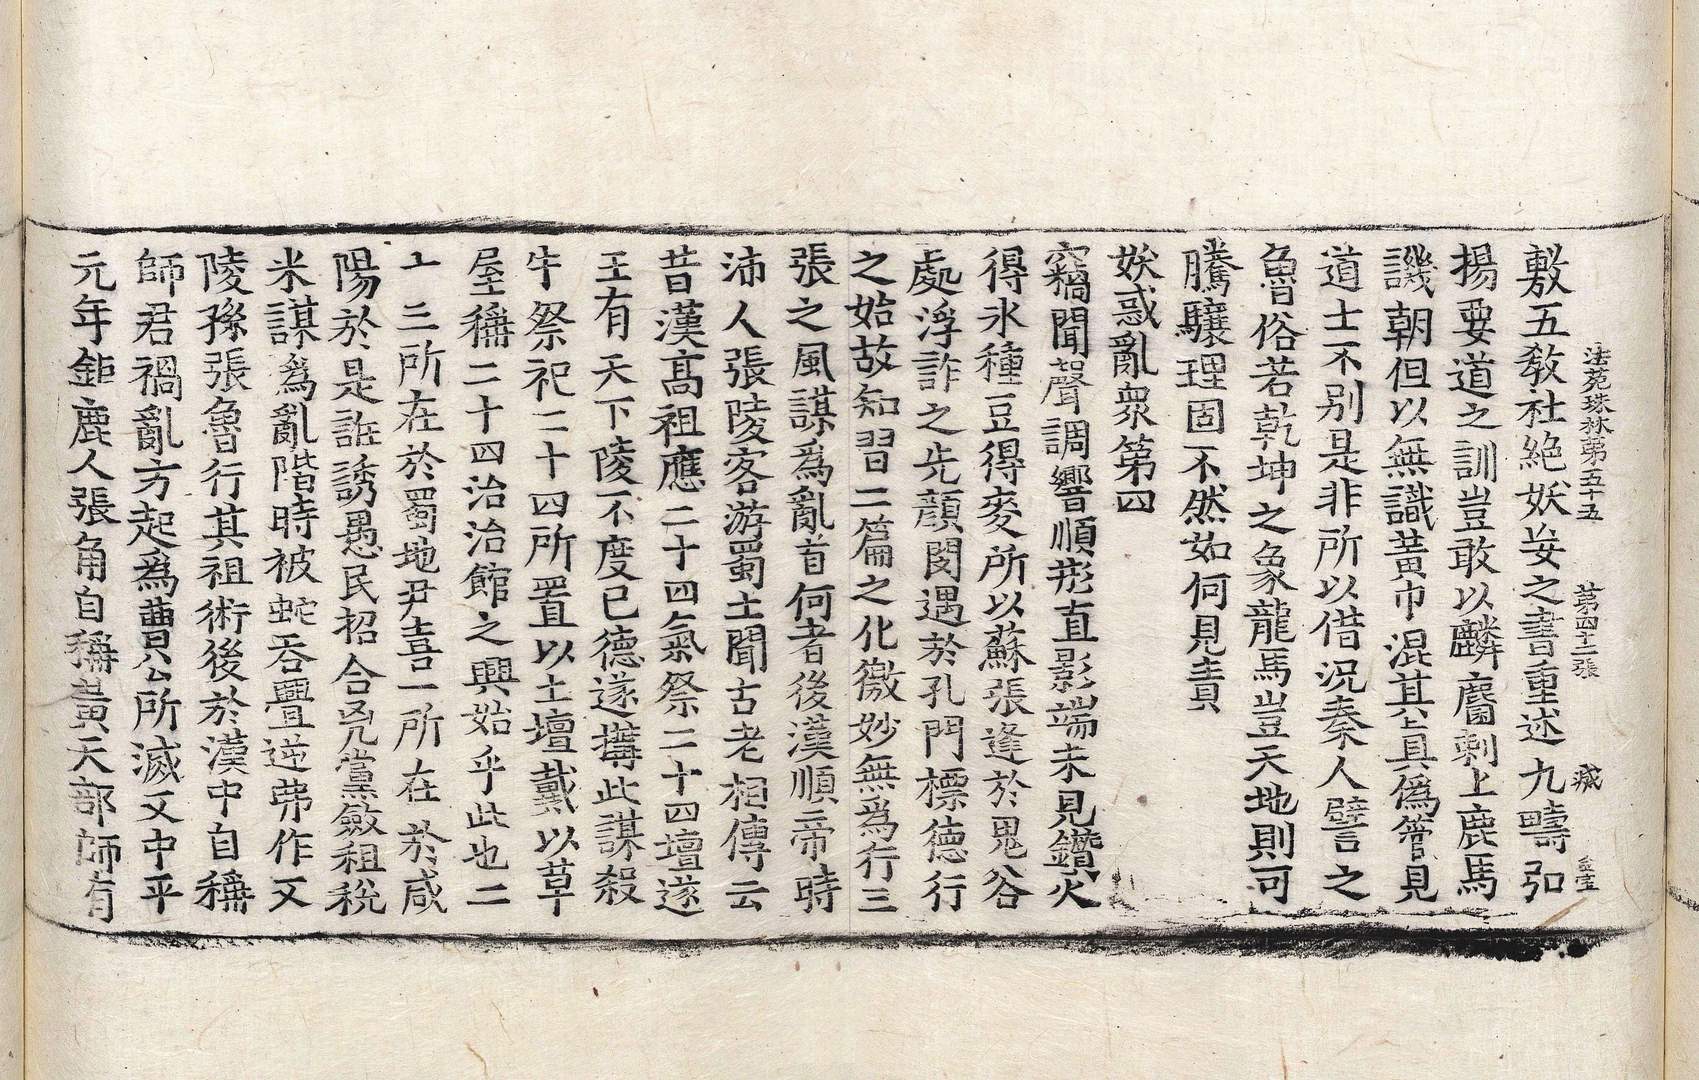 法苑珠林第五十五 第四十三張 疲
敷五教杜絶妖妄之書重述九疇弘
揚要道之訓豈敢以麟麕刺上鹿馬
譏朝但以無識黃巾混其真僞管見
道士不別是非所以借況秦人譬之
魯俗若乾坤之象龍馬豈天地則可
騰驤理固不然如何見責
妖惑亂衆第四
竊聞聲調響順形直影端未見鑽火
得氷種豆得麥所以蘇張逢於鬼谷
處浮詐之先顔閔遇於孔門標德行
之始故知習二篇之化徼妙無爲行三
張之風謀爲亂首何者後漢順帝時
沛人張陵客游蜀土聞古老相傳云
昔漢高祖應二十四氣祭二十四壇遂
王有天下陵不度已德遂搆此謀殺
牛祭祀二十四所置以土壇戴以草
屋稱二十四治治館之興始乎此也二
十三所在於蜀地尹喜一所在於咸
陽於是誑誘愚民招合兇黨斂租稅
米謀爲亂階時被蛇吞舋逆弊作又
陵孫張魯行其祖術後於漢中自稱
師君禍亂方起爲曹公所滅又中平
元年鉅鹿人張角自稱黃天部師有